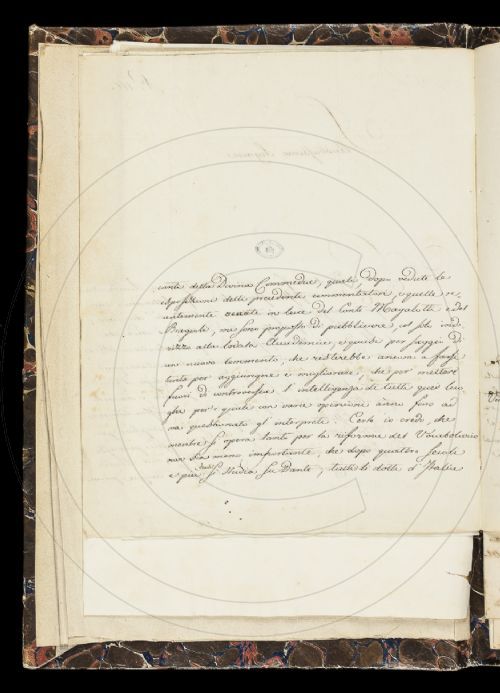 cante della Divina Commedia, quali, dopo vedute le
sposizioni delli precedenti commentatori, e quelle re-
centemente venute in luce del Conte Magalotti, e del
Biagioli, mi sono proposto di pubblicare, ed solo indi-
rizzo alla lodata Accademia, e quindi per saggio di
un nuovo Commento, che resterebbe ancora a farsi
tanto per aggiungere e migliorare, che per mettere
fuori di controversia l'intelligenza di tutti quei luo-
ghi per i quali con varie opinioni àvea fino ad
ora questionato gl'interpreti. Certo io credo, che
mentre si opera tanto per la riforma del Vocabolario
non sia meno importante, che dopo quattro secoli
e più dacché si studia su Dante, tutti li dotti d'Italia